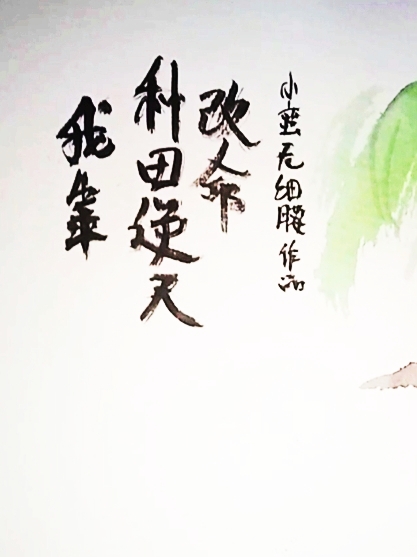 我靠
种田逆天
改命
小蛮无细腰作品